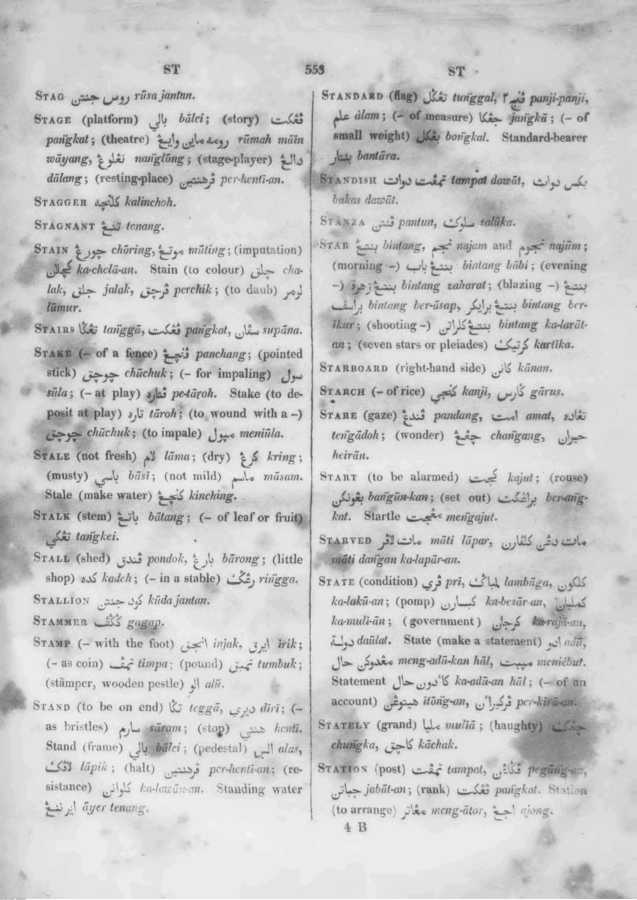 ST 553 ST
STAG روس جنتن rūsa jantan.
STAGE (platform) بالي bālei; (story) ڤڠكت
pang̃kat; (theatre) رومه ماين وايڠ rūmah māin
wāyang, نڠلوڠ nang̃lūng; (stage-player) دالڠ
dālang; (resting-place) ڤرهنتين per-hentī-an.
STAGGER كلنچه kalinchoh.
STAGNANT تنڠ tenang.
STAIN چورڠ chōring, موتڠ mūting; (imputation)
كچلان ka-chelā-an. Stain (to colour) چلق cha-
lak, جلق jalak, ڤرچق perchik; (to daub) لومر
lūmur.
STAIRS تڠݢا tang̃gā, ڤڠكت pang̃kat, سڤان supāna.
STAKE (– of a fence) ڤنچڠ panchang; (pointed
stick) چوچق chūchuk; (– for impaling) سول
sūla; (– at play) ڤتاره pe-tāroh. Stake (to de-
posit at play) تاره tāroh; (to wound with a –)
چوچق chūchuk; (to impale) مپول meniūla.
STALE (not fresh) لام lāma; (dry) كرڠ kring;
(musty) باسي bāsī; (not mild) ماسم māsam.
Stale (make water) كنچڠ kinching.
STALK (stem) باتڠ bātang; (– of leaf or fruit)
تڠكي tang̃kei.
STALL (shed) ڤندق pondok, بارڠ bārong; (little
shop) كده kadeh; (– in a stable) رڠݢ ring̃ga.
STALLION كود جنتن kūda jantan.
STAMMER ݢاݢڤ gagap.
STAMP (– with the foot) انجق injak, ايرق īrik;
(– as coin) تمڤ timpa; (pound) تمبق tumbuk;
(stāmper, wooden pestle) الو alū.
STAND (to be on end) تݢا teggā, ديري dīrī; (–
as bristles) سارم sāram; (stop) هنتي hentī.
Stand (frame) بالي bālei; (pedestal) الس alas,
لاڤك lāpik; (halt) ڤرهنتين per-hentī-an; (re-
sistance) كلوانن ka-lawān-an. Standing water
اير تنڠ āyer tenang.
STANDARD (flag) تڠݢل tung̃gal, ڤنجي٢ panji-panji,
علم ālam; (– of measure) جڠك jang̃kā; (– of
small weight) بڠكل bong̃kal. Standard-bearer
بنتار bantāra.
STANDISH تمڤت دوات tampat dawāt, بكس دوات
bakas dawāt.
STANZA ڤنتن pantun, سلوك salūka.
STAR بنتڠ bintang, نجم najam and نجوم najūm;
(morning –) بنتڠ باب bintang bābi; (evening
–) بنتڠ زهرة bintang zaharat; (blazing –) بنتڠ
براسڤ bintang ber-āsap, بنتڠ برايكر bintang ber-
īkur; (shooting –) بنتڠ كلراتن bintang ka-larāt-
an; (seven stars or pleiades) كرتيك kartīka.
STARBOARD (right-hand side) كانن kānan.
STARCH (– of rice) كنجي kanji, ݢارس gārus.
STARE (gaze) ڤندڠ pandang, امت amat, تڠاده
teng̃ādoh; (wonder) چڠڠ chang̃ang, حيران
heirān.
START (to be alarmed) كجت kajut; (rouse)
بڠونكن bang̃ūn-kan; (set out) براڠكت ber-ang̃-
kat. Startle مڠجت meng̃ajut.
STARVED مات لاڤر māti lāpar, مات دڠن كلڤارن
māti dang̃an ka-lapār-an.
STATE (condition) ڤري prī, لمباݢ lambāga, كلكون
ka-lakū-an; (pomp) كبسارن ka-besār-an, كملين
ka-mulī-ān; (government) كرجان ka-rajā-an,
دولة daūlat. State (make a statement) ادو adū,
مڠدوكن حال meng-adū-kan hāl, مپبت meniebut.
Statement كادون حال ka-adū-an hāl; (– of an
account) هيتوڠن itūng̃-an, ڤركيران per-kirā-an.
STATELY (grand) مليا muliā; (haughty) چڠك
chung̃ka, كاچق kāchak.
STATION (post) تمڤت tampat, ڤݢاڠن pegāng̃-an,
جباتن jabāt-an; (rank) ڤڠكت pang̃kat. Station
(to arrange) مڠاتر meng-ātor, اجڠ ajong.
4 B